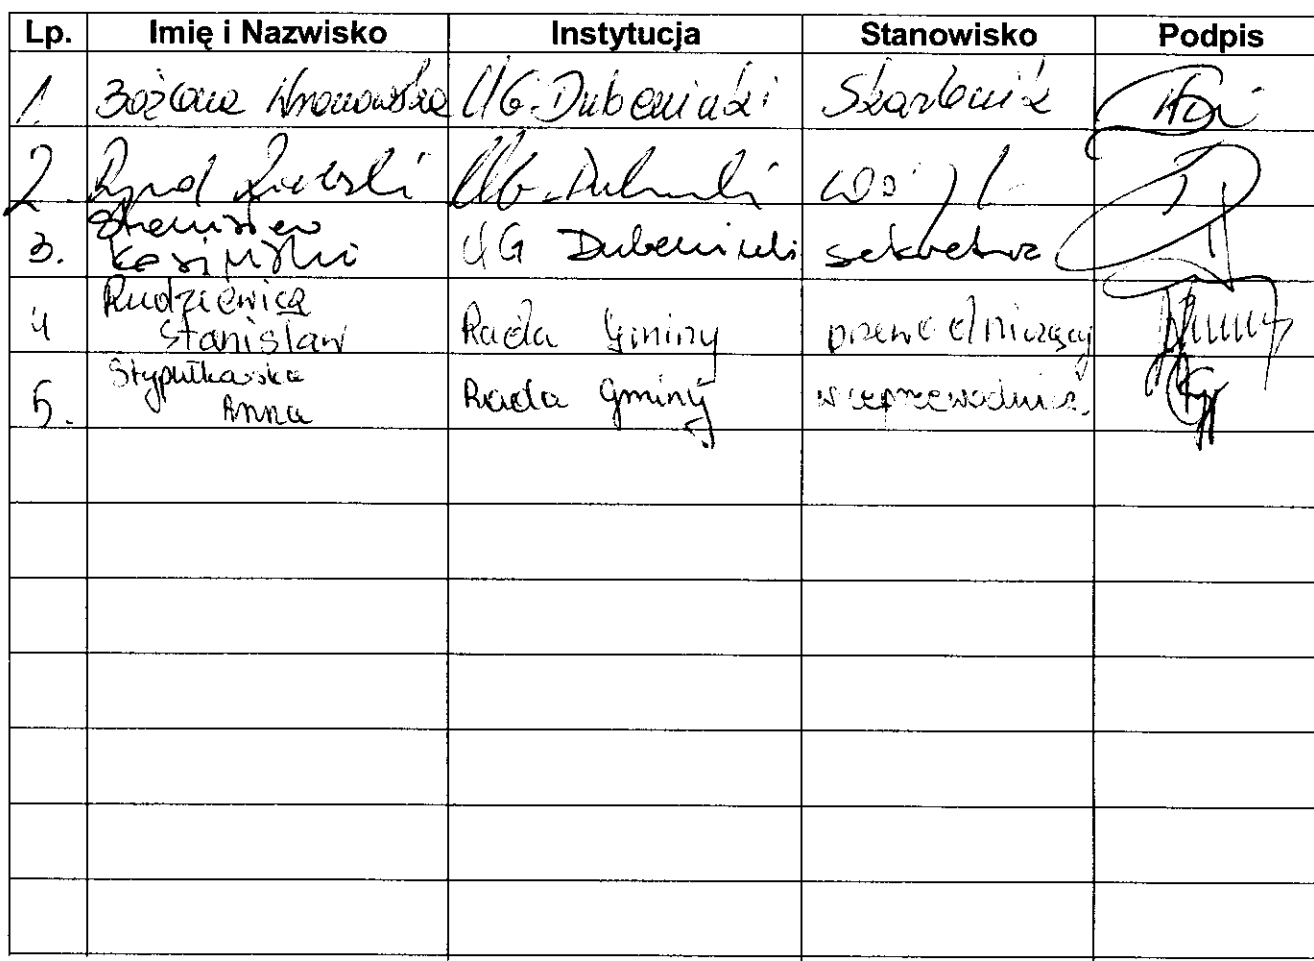 Lp. Imię i Nazwisko Instytucja Stanowisko Podpis
1. Bożena Wronowska UG. Dubeninki Skarbnik
2. UG. Dubeninki Wójt
3. Stanisław UG Dubeninki sekretarz
4 Rudziewicz
Stanisław Rada Gminy przewodniczący
5. Stypułkowska
Anna Rada Gminy wiceprzewodnicz.